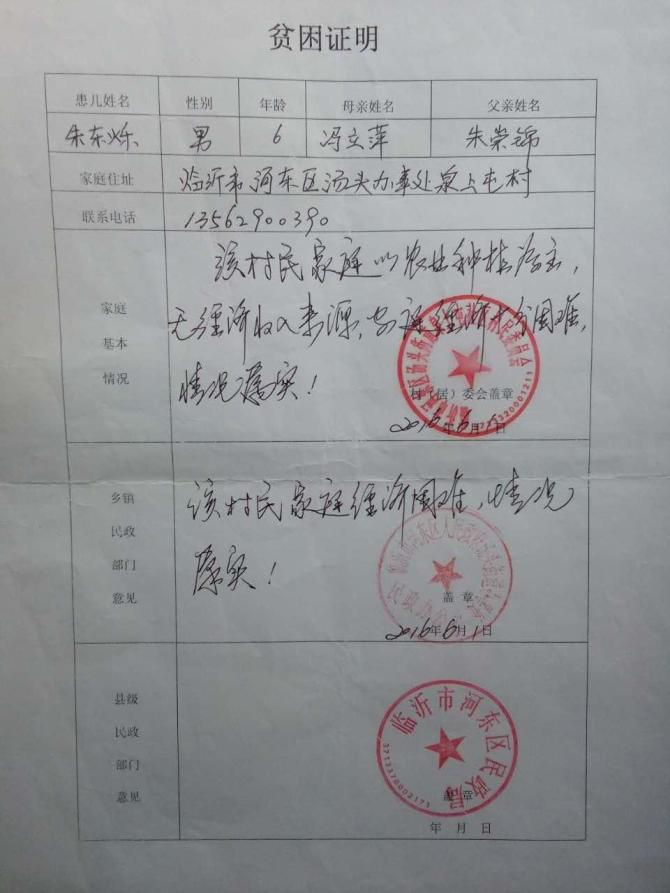 贫困证明
患儿姓名 性别 年龄 母亲姓名 父亲姓名
朱东烁 男 6 冯立萍 朱崇锦
家庭住址 临沂市河东区汤头办事处泉上屯村
联系电话 13562900390
家庭基本情况
该村民家庭以农业种植为主,
无经济收入来源,家庭经济十分困难,
情况属实!
村(居)委会盖章
2016年6月1日
乡镇民政部门意见
该村民家庭经济困难,情况
属实!
盖 章
2016年6月1日
县级民政部门意见
临沂市河东区民政局
3713370002173
盖 章
年 月 日